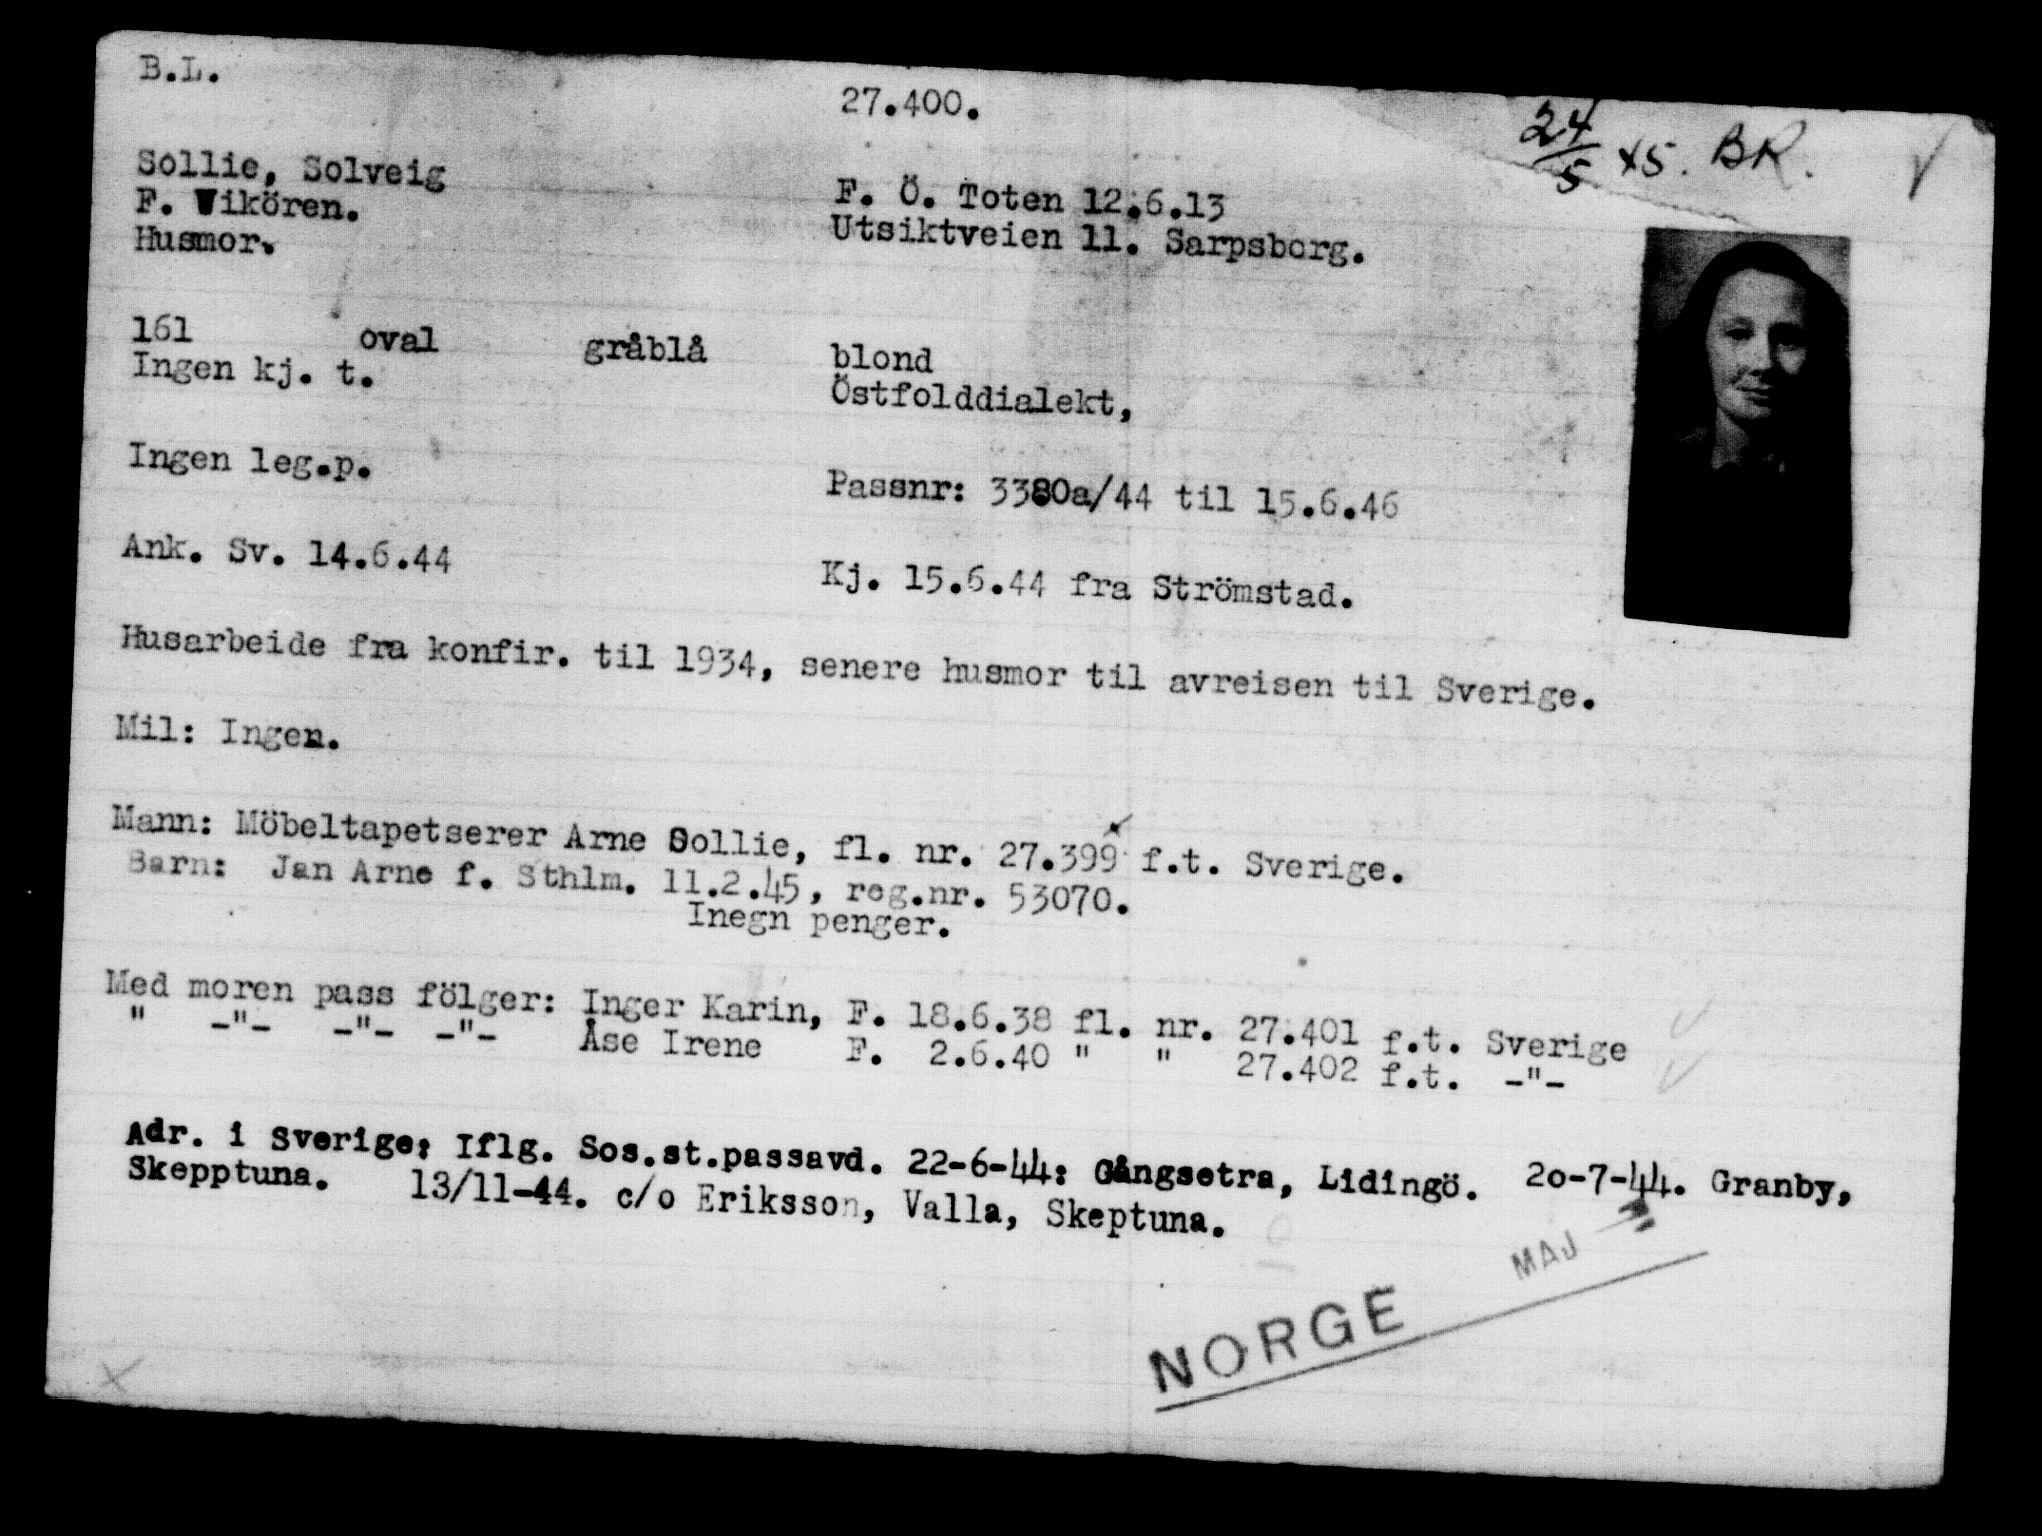 B.L.
27.400.
24/5 45. BR.
Sollie, Solveig
F. Vikören.
Husmor.
F. Ö. Toten 12.6.13
Utsiktveien 11. Sarpsborg.
161 oval gråblå blond
Ingen kj. t. Östfolddialekt,
Ingen leg.p. Passnr: 3380a/44 til 15.6.46
Ank. Sv. 14.6.44 Kj. 15.6.44 fra Strömstad.
Husarbeide fra konfir. til 1934, senere husmor til avreisen til Sverige.
Mil: Ingen.
Mann: Möbeltapetserer Arne Sollie, fl. nr. 27.399 f.t. Sverige.
Barn: Jan Arne f. Sthlm. 11.2.45, reg.nr. 53070.
Inegn penger.
Med moren pass fölger: Inger Karin, F. 18.6.38 fl. nr. 27.401 f.t. Sverige
" -"- -"- -"- Åse Irene F. 2.6.40 " " 27.402 f.t. -"-
Adr. i Sverige: Iflg. Sos.st.passavd. 22-6-44: Gångsetra, Lidingö. 2o-7-44. Granby,
Skepptuna. 13/11-44. c/o Eriksson, Valla, Skeptuna.
MAJ
NORGE